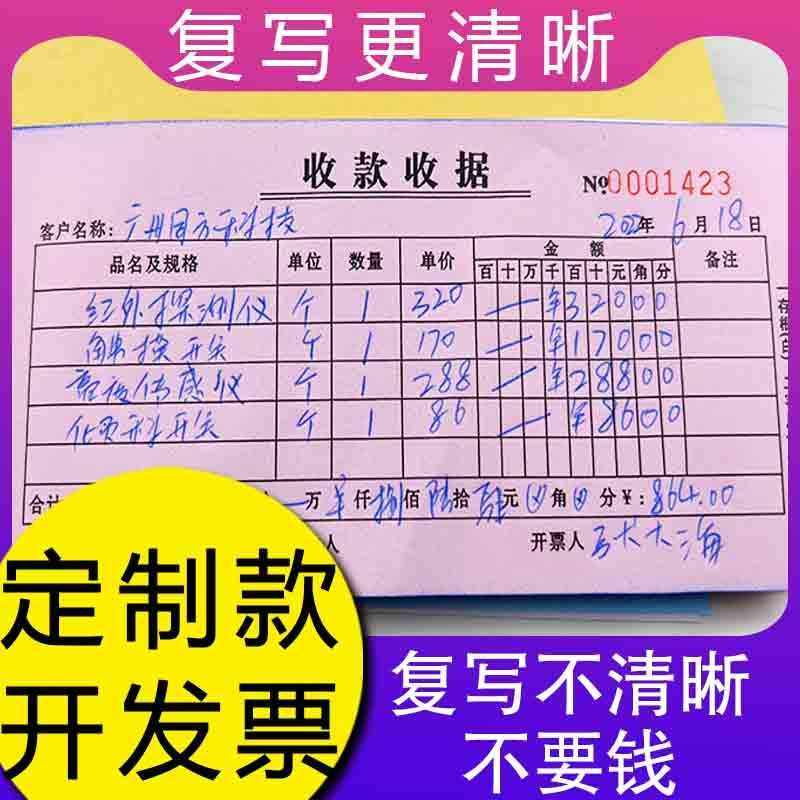 复写更清晰
收款收据
№0001423
客户名称: 广州同方科技
202 年 6 月 18 日
品名及规格 单位 数量 单价 金额 备注
百 十 万 千 百 十 元 角 分
红外探测仪 个 1 320 — ¥32000
开关 个 1 170 — ¥17000
传感仪 个 1 288 — ¥28800
开关 个 1 86 — ¥8600
合计 万 仟 捌 佰 陆 拾 肆 元 角 分 ¥: 864.00
人 开票人 大海
定制款
开发票
复写不清晰
不要钱